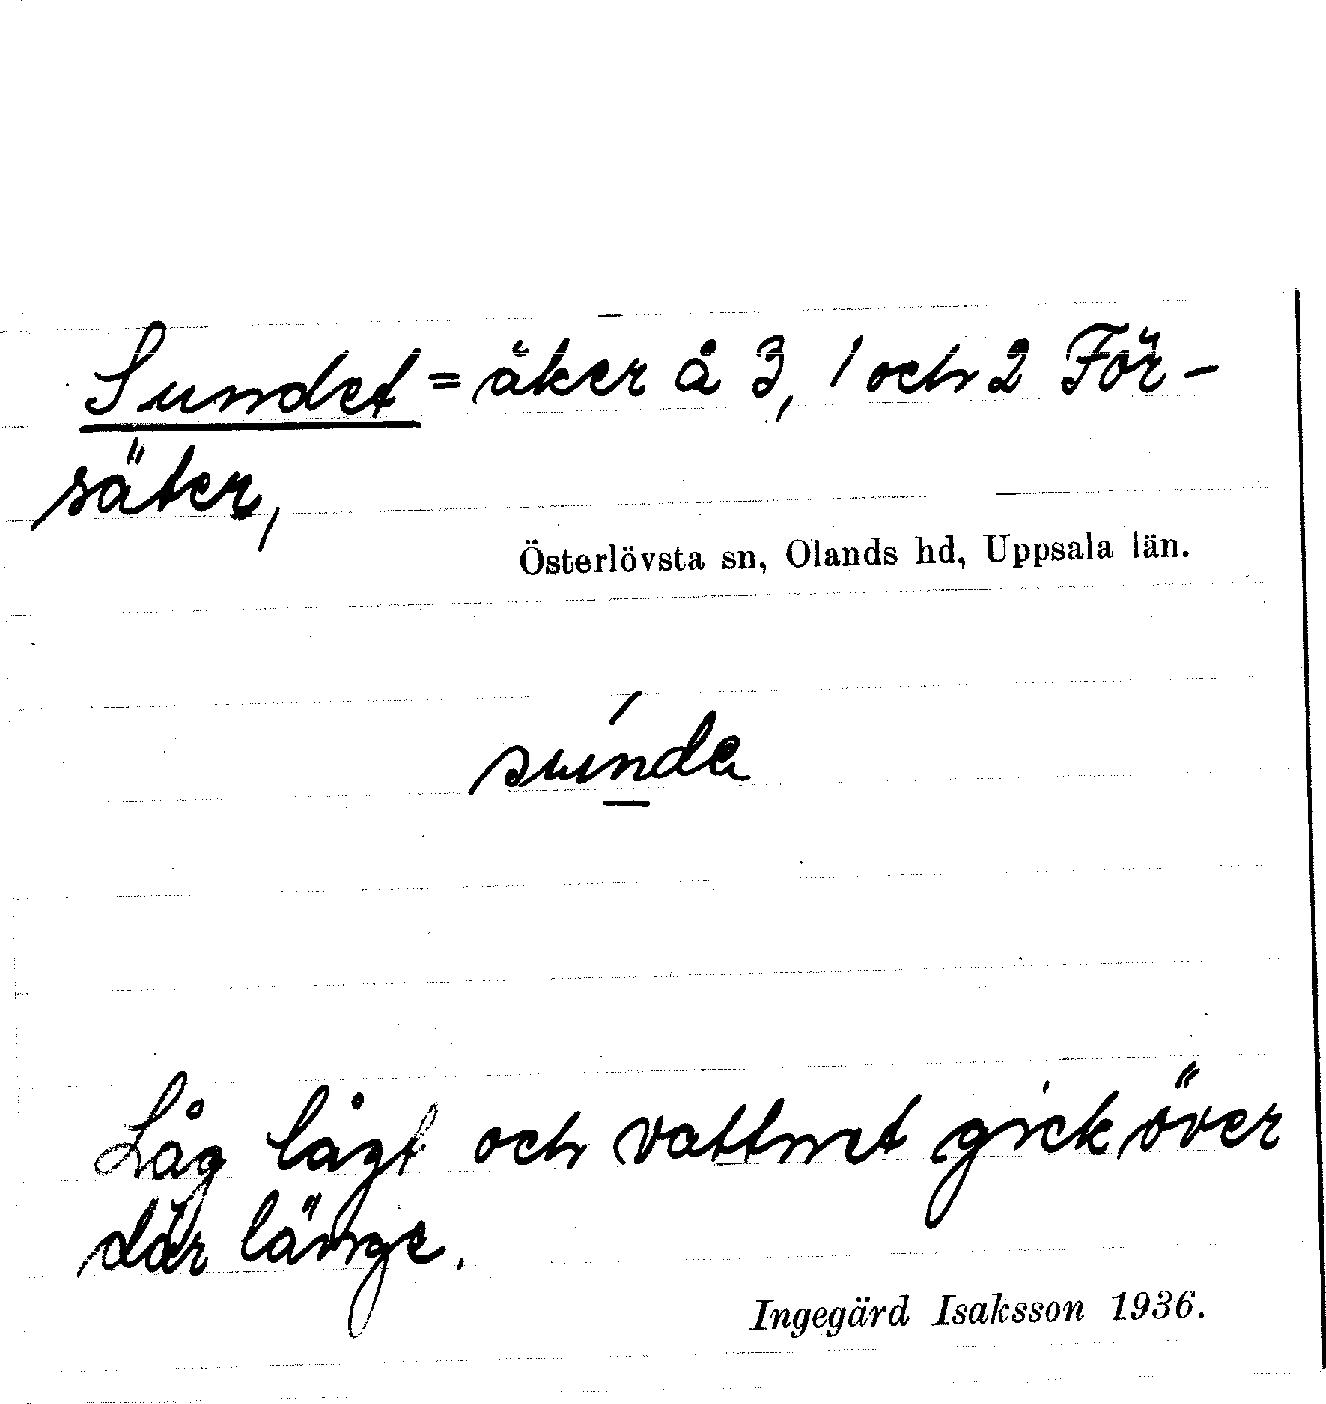 Sundet = åker å 3, 1 och 2 För-
säter,
Österlövsta sn, Olands hd, Uppsala län.
súnda
Låg lågt och vattnet gick över
där länge.
Ingegärd Isaksson 1936.